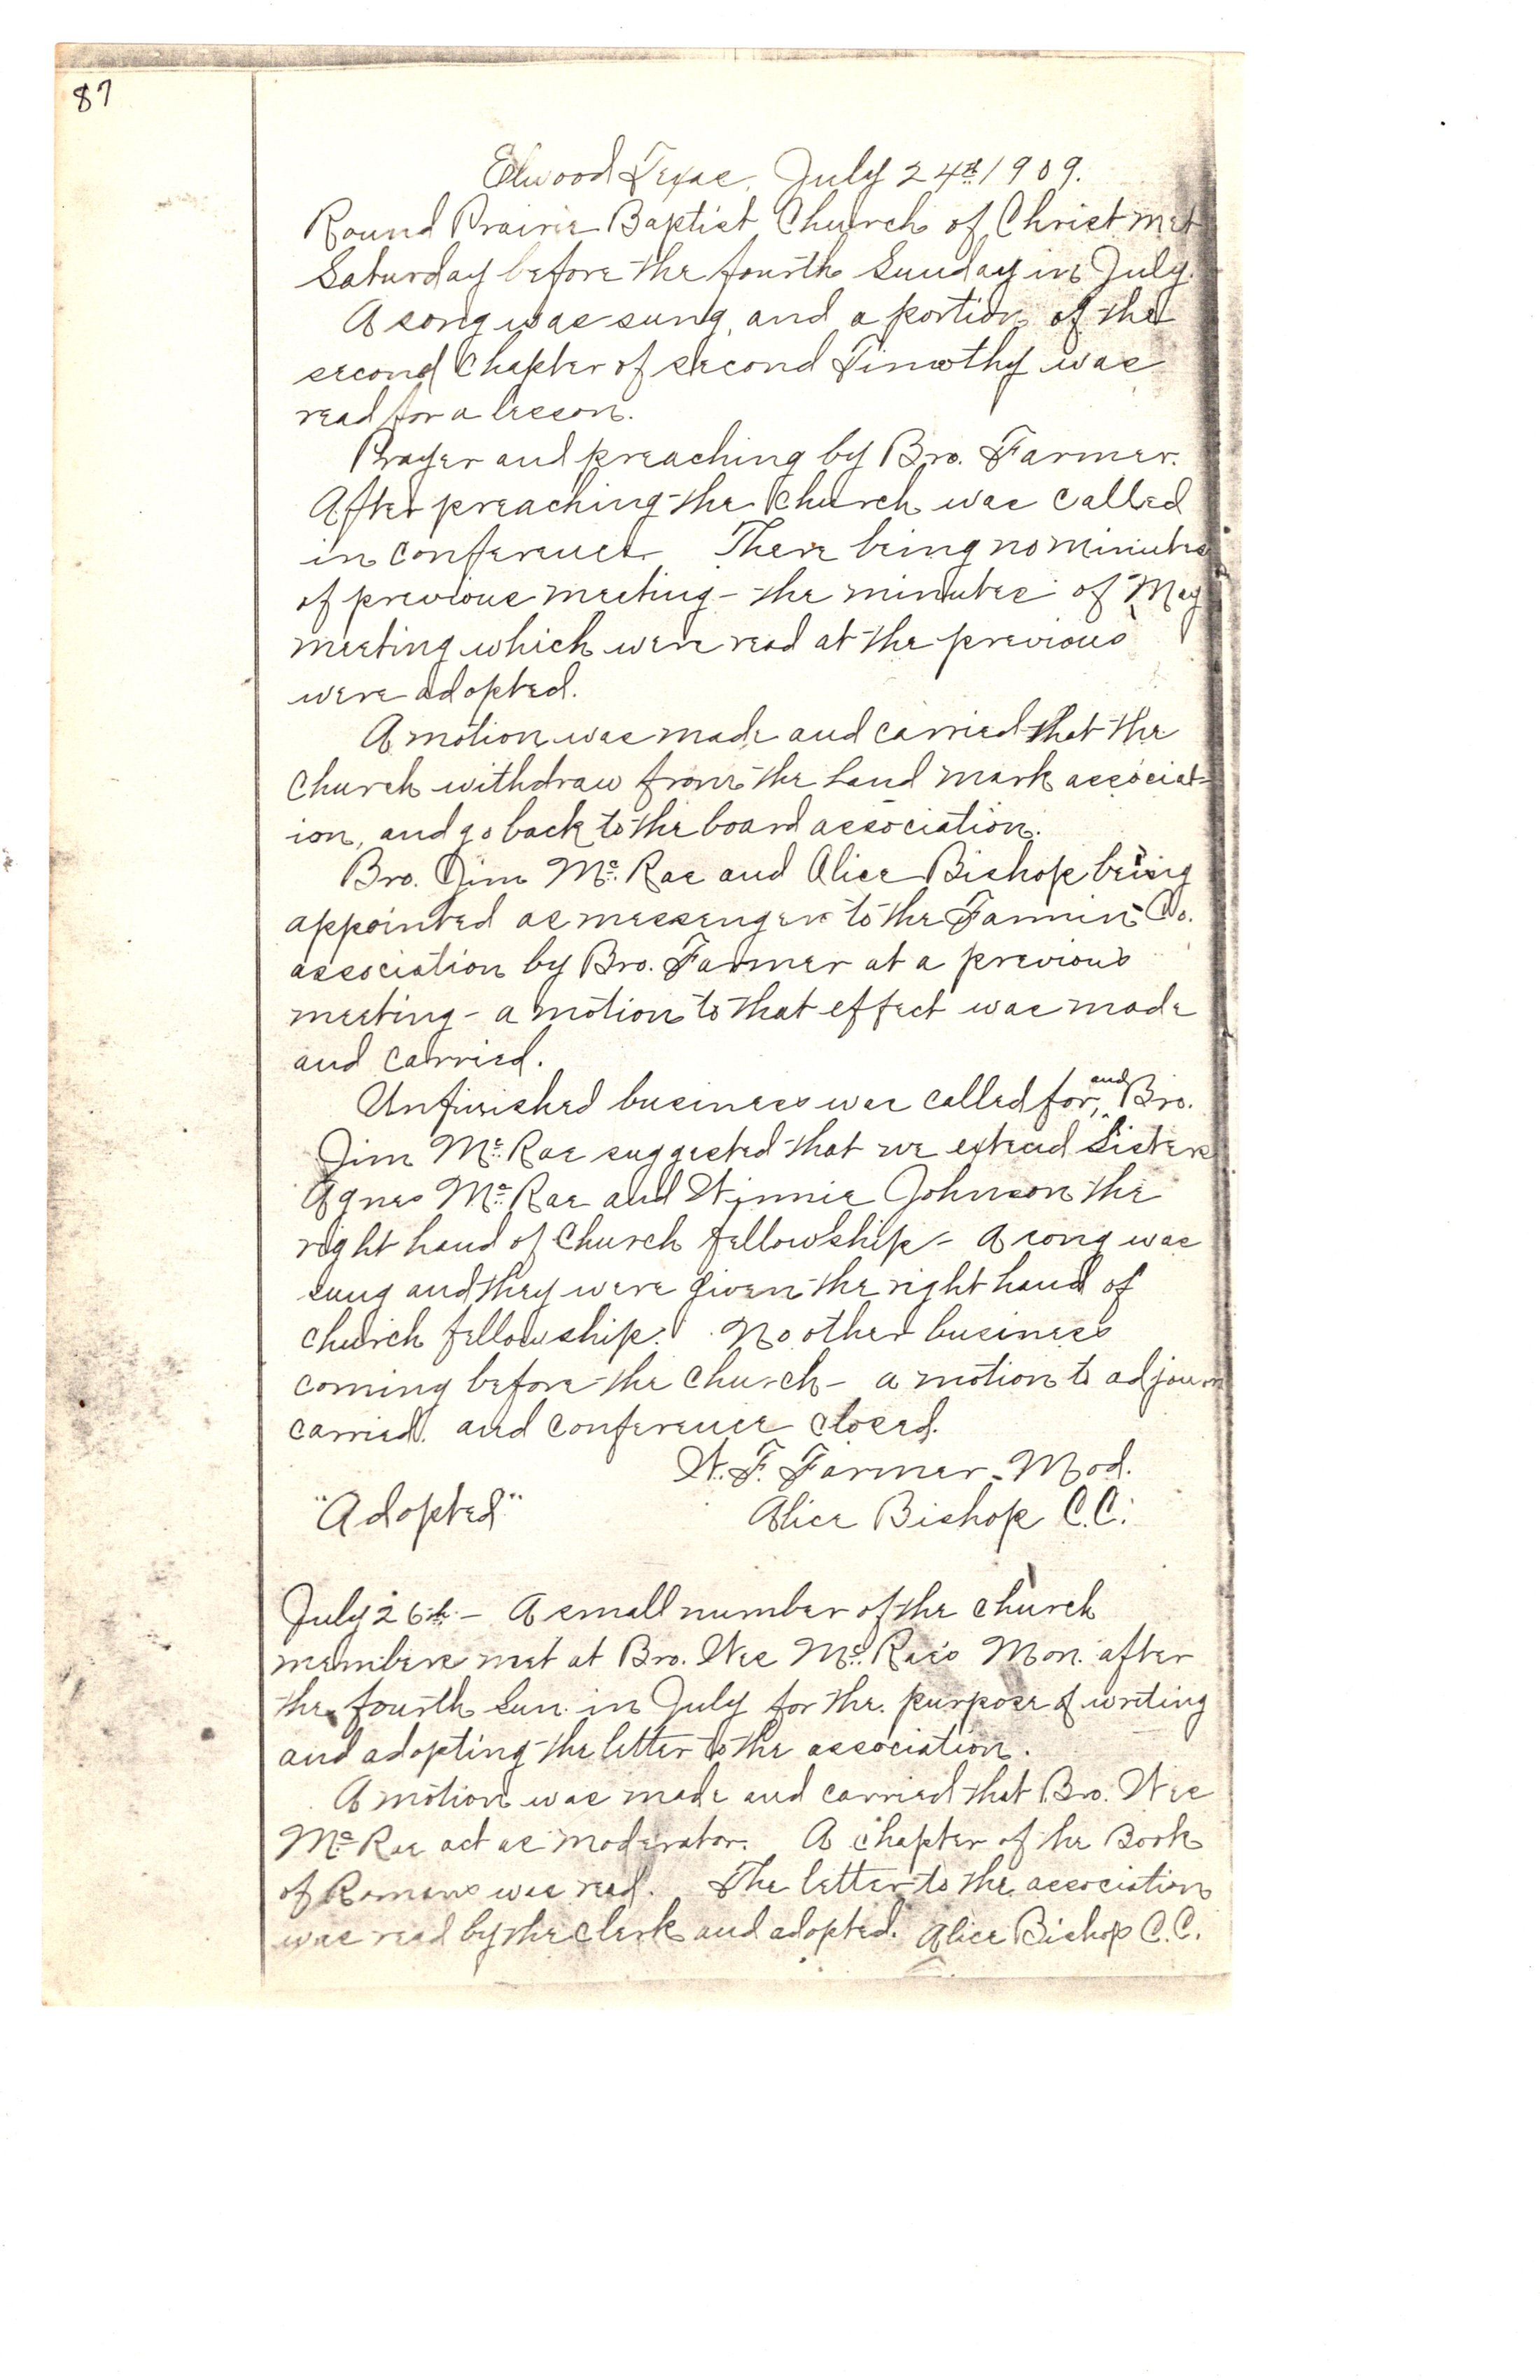 87
Elwood Texas, July 24th 1909.
Round Prairie Baptist Church of Christ met
Saturday before the fourth Sunday in July.
A song was sung, and a portion of the
second Chapter of second Timothy was
read for a lesson.
Prayer and preaching by Bro. Farmer.
After preaching the church was called
in conference. There being no minutes
of previous meeting - the minutes of May
meeting which were read at the previous
were adopted.
A motion was made and carried that the
church withdraw from the Land mark associat-
ion, and go back to the board association.
Bro. Jim Mc. Rae and Alice Bishop being
appointed as messengers to the Fannin Co.
association by Bro. Farmer at a previous
meeting - a motion to that effect was made
and carried.
Unfinished business was called for, and Bro.
Jim Mc. Rae suggested that we extend Sisters
Agnes Mc. Rae and Winnie Johnson the
right hand of Church fellowship - A song was
sung and they were given the right hand of
church fellowship. No other business
coming before the church - a motion to adjourn
carried. and conference closed.
W. F. Farmer - Mod.
"Adopted"
Alice Bishop C.C.
July 26th - A small number of the church
members met at Bro. Wes Mc. Rae's Mon. after
the fourth Sun. in July for the purpose of writing
and adopting the letter to the association.
A motion was made and carried that Bro. Wes
Mc Rae act as moderator. A chapter of the Book
of Romans was read. The letter to the association
was read by the clerk and adopted. Alice Bishop C.C.